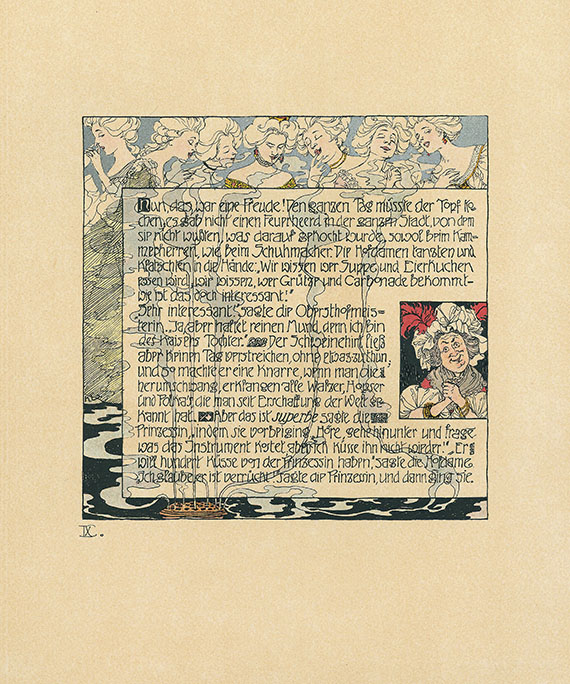 Nun, das war eine Freude! Den ganzen Tag müsste der Topf ko
chen, es gab nicht einen Feuerheerd in der ganzen Stadt, von dem
sie nicht wußten, was darauf gekocht wurde, sowol beim Kam=
merherrn, wie beim Schuhmacher. Die Hofdamen tanzten und
klatschten in die Hände: „Wir wissen wer Suppe und Eierkuchen
essen wird, wir wissen, wer Grütze und Carbonade bekommt-
wie ist das doch interessant!"
Sehr interessant!" sagte die Obersthofmeis=
terin. „Ja, aber haltet reinen Mund, denn ich bin
des Kaisers Tochter." Der Schweinehirt ließ
aber keinen Tag verstreichen, ohne etwas zu thun,
und so machte er eine Knarre, wenn man die
herumschwang, erklangen alle Walzer, Hopser
und Polka's, die man seit Erschaffung der Welt ge
kannt hat. Aber das ist superbe sagte die
Prinzessin, indem sie vorbeiging. „Höre, gehe hinunter und frage
was das Instrument kostet, aber ich küsse ihn nicht wieder!" „Er
will hundert Küsse von der Prinzessin haben," sagte die Hofdame.
„Ich glaube, er ist verrückt!" sagte die Prinzessin, und dann ging sie.
IX.